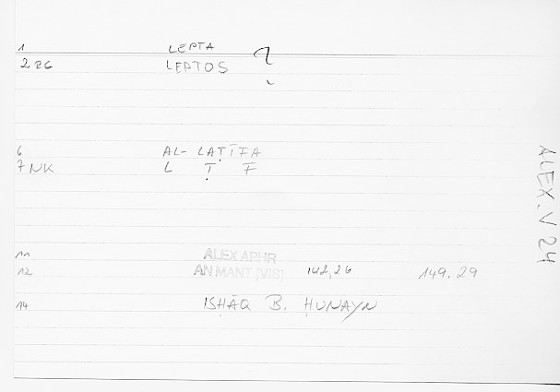 1 LEPTA ?
2 EG LEPTOS
6 AL- LAṬĪFA
7 NK L Ṭ F
11 ALEX APHR
12 AN MANT [VIS] 142,26 149.29
14 ISḤĀQ B. ḤUNAYN
ALEX. V 24